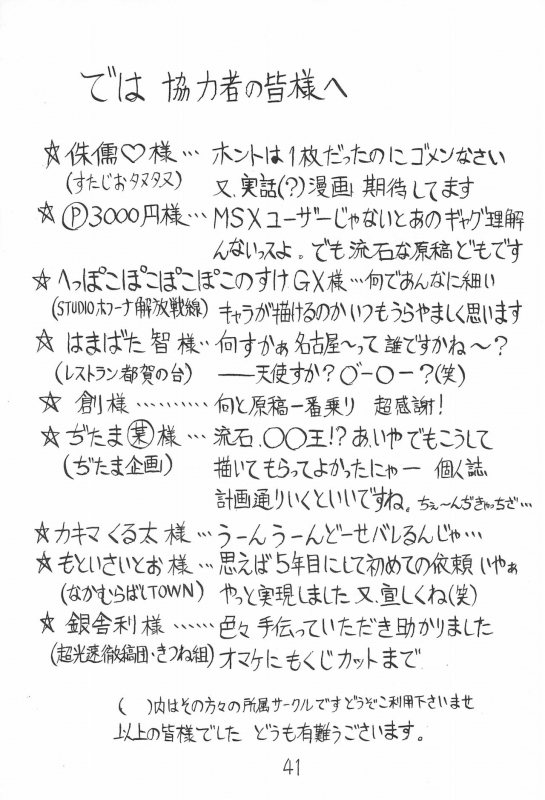 では 協力者の皆様へ
☆侏儒♡様… ホントは1枚だったのにゴメンなさい
(すたじおタヌタヌ) 又、実話(?)漫画 期待してます
☆Ⓟ3000円様… MSXユーザーじゃないとあのギャグ理解
んないっスよ。でも流石な原稿どもです
☆へっぽこぽこぽこぽこのすけGX様…何であんなに細い
(STUDIOホフーナ解放戦線) キャラが描けるのかいつもうらやましく思います
☆はまばた 智 様… 何すかぁ 名古屋〜って 誰ですかね〜?
(レストラン都賀の台) ――天使すか? ○゛ー○ー?(笑)
☆ 創様………… 何と原稿一番乗り 超感謝!
☆ぢたま㊎様… 流石、○○王!? あ、いやでもこうして
(ぢたま企画) 描いてもらってよかったにゃー 個人誌
計画通りいくといいですね。ちぇ〜んぢきゃっちざ…
☆カキマくる太 様… うーんうーんどーせバレるんじゃ…
☆もといさいとお 様… 思えば5年目にして初めての依頼 いやぁ
(なかむらばしTOWN) やっと実現しました 又、宜しくね(笑)
☆ 銀舎利 様…… 色々手伝っていただき助かりました
(超光速徹稿団・きつね組) オマケにもくじカットまで
( )内はその方々の所属サークルですどうぞご利用下さいませ
以上の皆様でした どうも有難うございます。
41